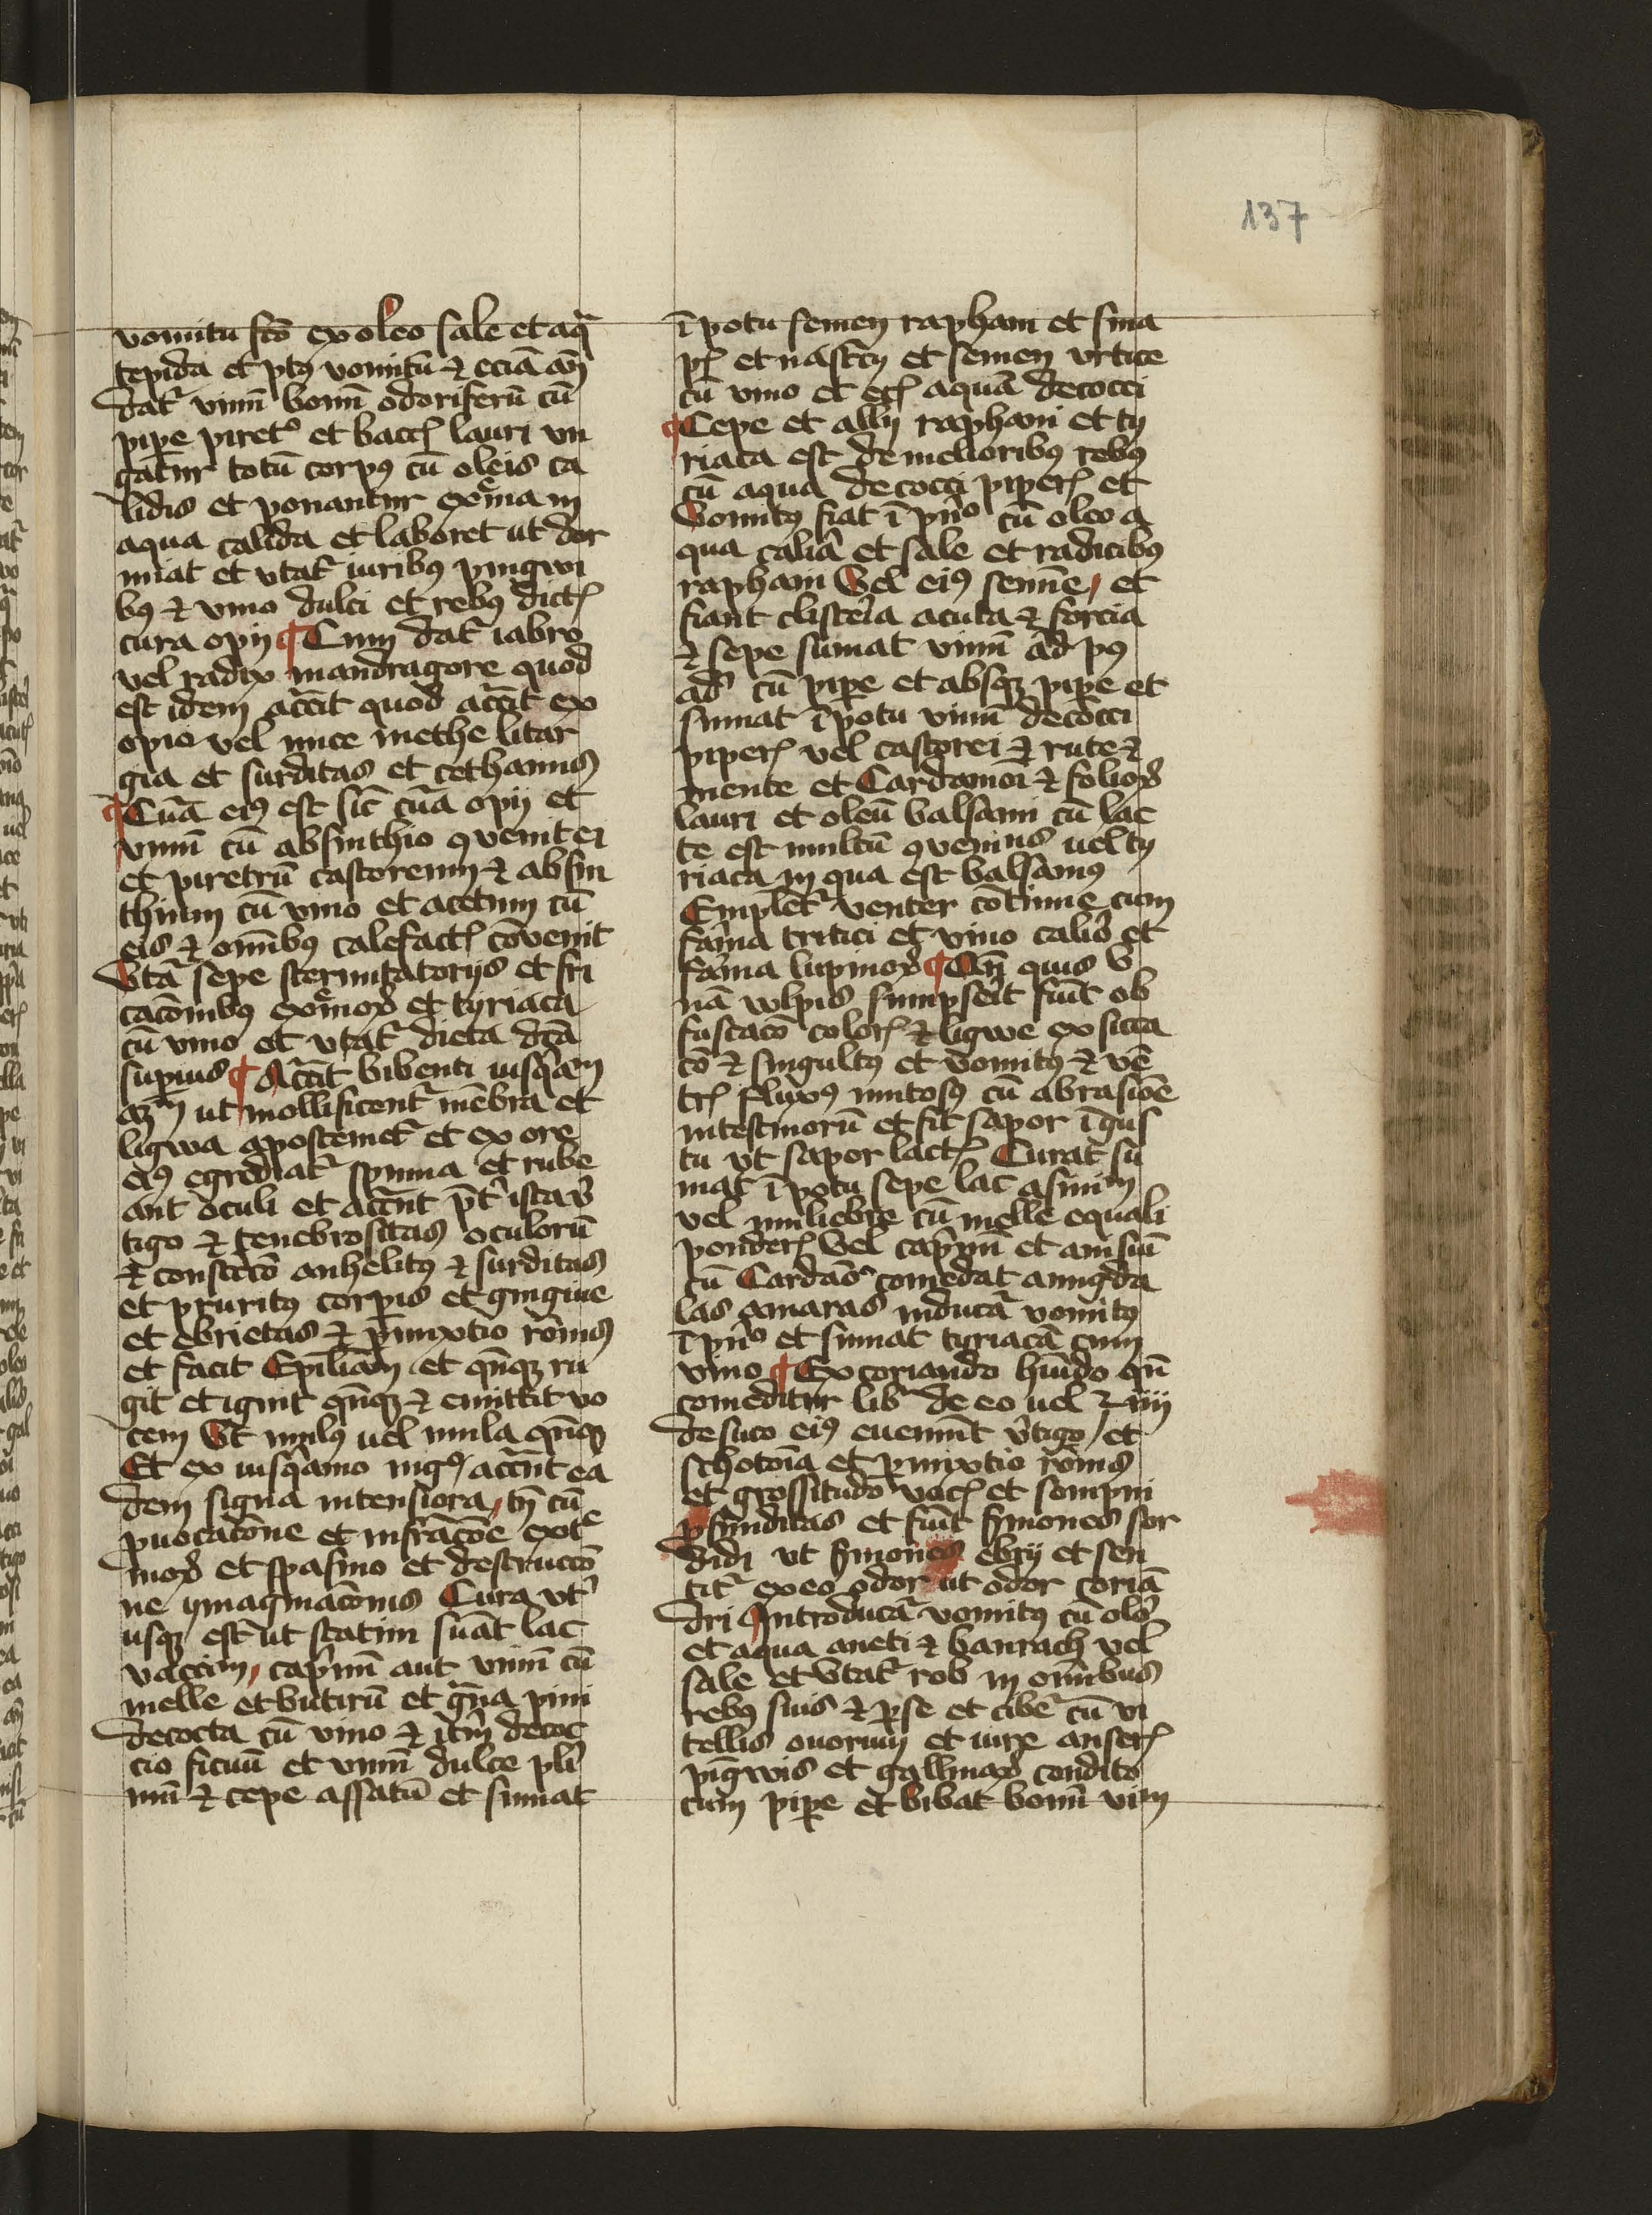 137
vomitu fc̄o ex oleo sale et aq̄
tepida et p̄t vomitū ⁊ eciā añ
dat͛ vinū bonū odoriferū cū
pipe piret͛ et bacc̄ lauri vn
gatur totū corpꝰ cū oleis ca
lidis et ponantur ext͛ma in
aqua calida et laboret ut dor
miat et vtat͛ iuribꝰ pingwi
bꝰ ⁊ vino dulci et rebꝰ dictꝭ
cura opij ¶ Cum dat͛ iabro
vel radix mandragore quod
est idem acc̄it quod acc̄it ex
opio vel nuce methe litar
gia et surditas et tethanus
¶ Cuā eiꝰ est sic̄ cuā opij et
vinū cū absinthio ꝯvenit ei
et piretrū castoreum ⁊ absin
thium cū vino et acetum cū
eis ⁊ om̄ibꝰ calefactꝭ cōvenit
Vtā sepe sternutatorijs et fri
cac̄onibꝰ ext͛moꝝ et tyriaca
cū vino et vtat͛ dieta dc̄ā
superius ¶ Acc̄it bibenti iusq̄am
ut mollificent͛ mēbra et
ligwa apostemet͛ et ex ore
eiꝰ egrediat͛ spuma et rube
ant oculi et acc̄nt p̄t ista v̄
tigo ⁊ tenebrositas oculorū
⁊ constc̄cō anhelitꝰ ⁊ surditas
et pruritꝰ corpis et gingiue
et ebrietas ⁊ p̄mixtio rōnis
et facit Epiliam et qn̄qꝫ ru
git et ignit qn̄qꝫ ⁊ emittit vo
cem Vt mulꝰ uel mula qn̄qꝫ
Et ex iusq̄amo nigꝰ acc̄nt ea
dem signa intensiora, tn̄ cū
puocac̄one et infrac̄oe ext͛
moꝝ et spasmo et destrucc̄o
ne ymaginac̄onis Cura vt͛
usqꝫ est ut statim sūat lac
vaccinū, cap̄nū aut vinū cū
melle et butirū et g̃na pini
decocta cū vino ⁊ it̄m decoc
cio ficuū et vinū dulce pl̄i
mū ⁊ cepe assatū et sumat
ī potu semen raphani et sina
pꝭ et nastc̄ij et semen vrtice
cū vino et etꝭ aquā decocci
¶ Cepe et allij raphani et ty
riaca est de melioribꝰ rebꝰ
cū aqua decocci piperꝭ et
Vomitꝰ fiat ī pn̄o cū oleo a
qua calīa et sale et radicibꝰ
raphani Vel eiꝰ semīe, et
fiant clisteria acuta ⁊ forcia
⁊ sepe sumat vinū ad pꝰ
ad͛ cū pipe et absqꝫ pipe et
sumat ī potu vinū decocci
piperꝭ vel castorei ⁊ rute ⁊
mente et Cardamoī ⁊ folioꝝ
lauri et oleū balsami cū lac
te est multū ꝯveniens uel ty
riaca in qua est balsamꝰ
Emplet͛ venter cōtinue cum
farina tritici et vino calid̄o et
farina lupinoꝝ ¶ Qn̄ quis v̄
nā vulpis sumpserit fiūt ob
fuscacō colorꝭ ⁊ ligwe exsicca
cō ⁊ singultꝰ et vomitꝰ ⁊ vē
trꝭ fluxꝰ mitosꝰ cū abrasiōe
intestinorū et fit sapor ī gus
tu vt sapor lactꝭ Curat su
mat ī potu sepe lac asininū
vel muliebre cū melle equali
ponderꝭ Vel cap̄nū et anisuī
cū Cardāo comedat amigda
las amaras inducā vomitꝰ
ī pn̄o et sumat tyriacā cum
vino ¶ Ex coriandro hūido qn̄
comeditur lib͛ de eo uel ʒ iiii
de suco eiꝰ eueniūt v̄tigo, et
schotoīa et p̄mixtio rōnis
et grossitudo vocꝭ et sompni
ꝓfunditas et fiūt s̄mones sor
didi ut s̄mones ebrij et sen
tit͛ ex eo odor ut odor coriā
dri Introducā vomitꝰ cū oleo
et aqua aneti ⁊ baurach vel
sale et Vtat͛ rob in omībus
rebꝰ suis ⁊ ꝑ se et cibe͛ cū vi
tellis ouorum et iure anserꝭ
pīgwis et gallinaꝝ condito
cum pipe et bibat bonū vinū